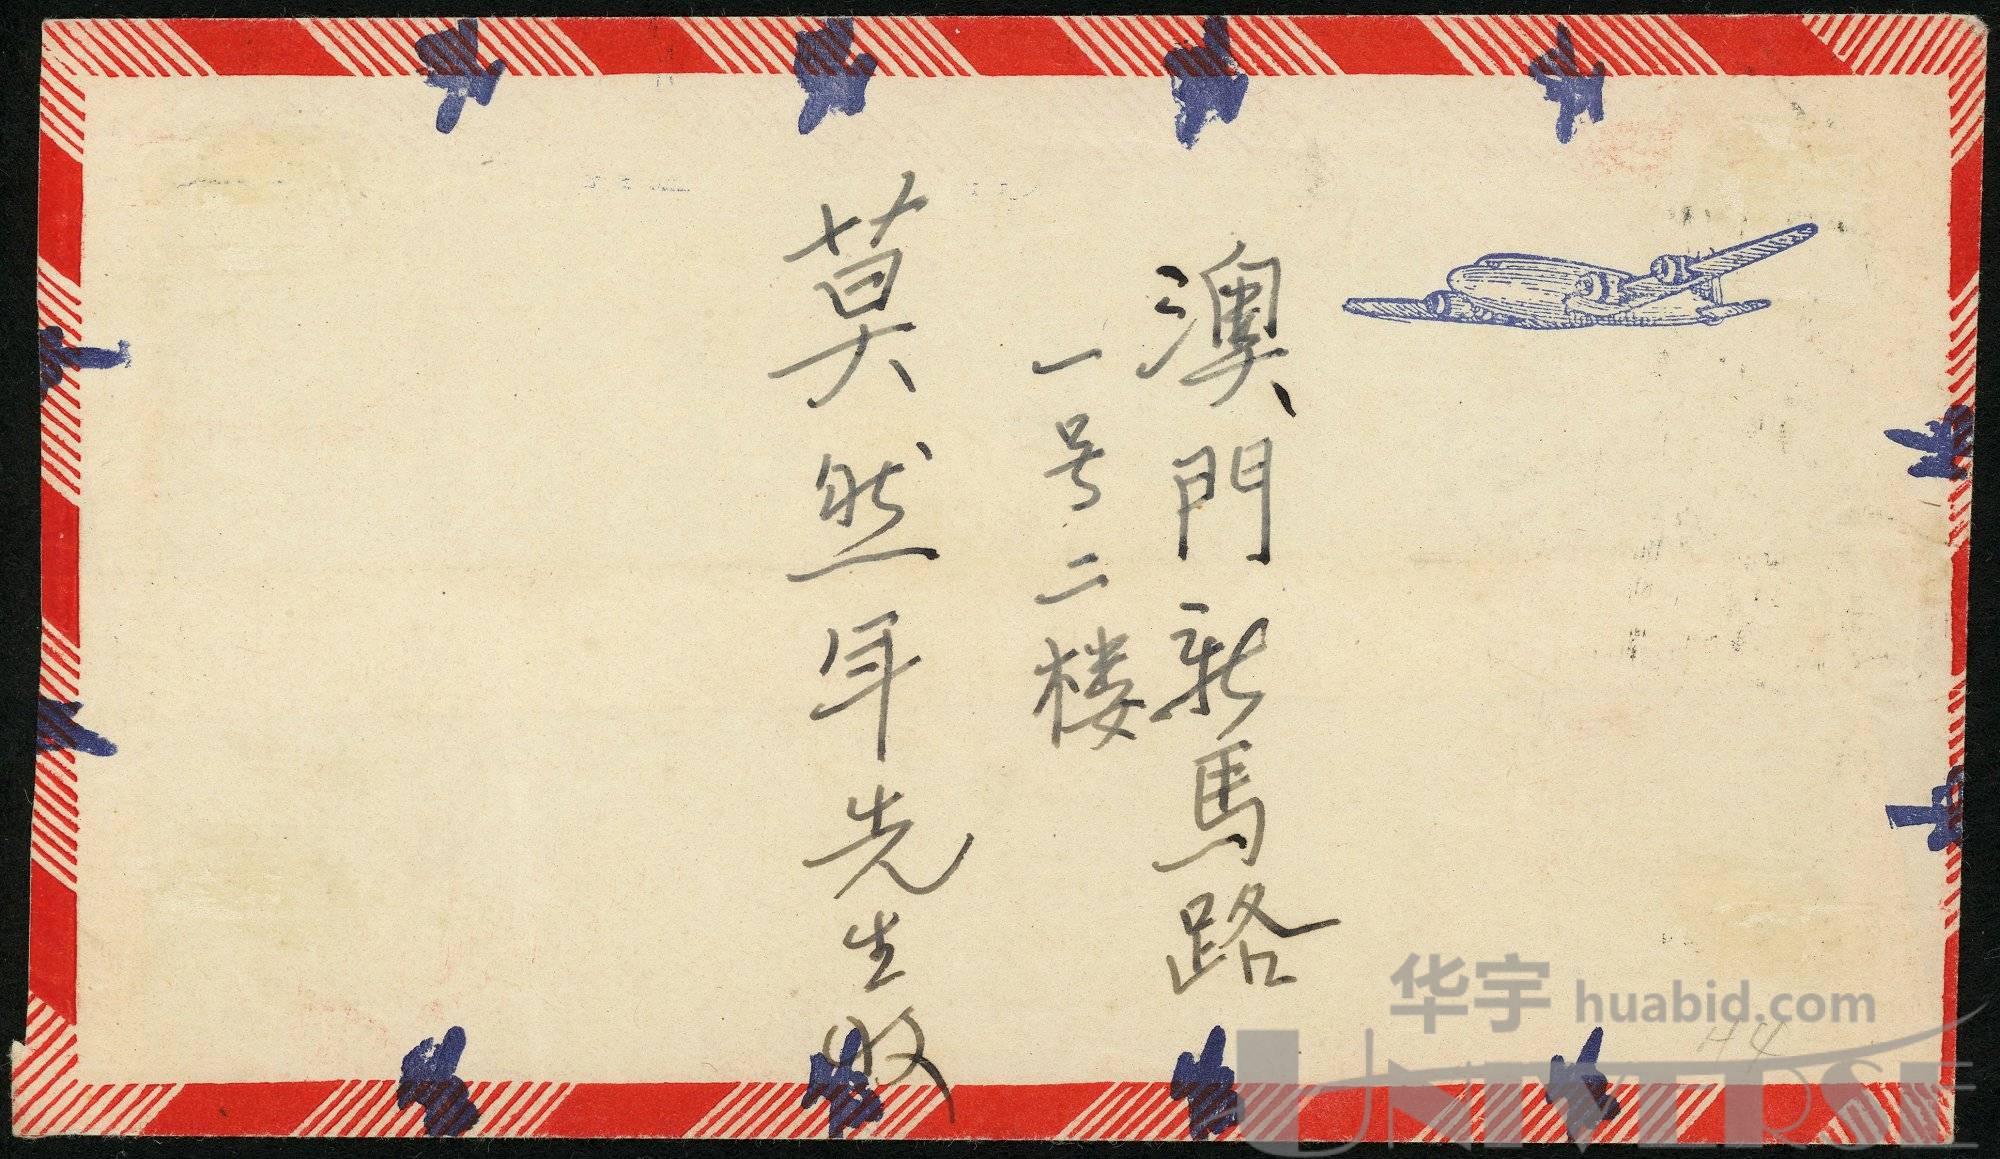 澳門新馬路
一号二楼
莫然年先生收
华宇 huabid.com
UNIVERSE
H4